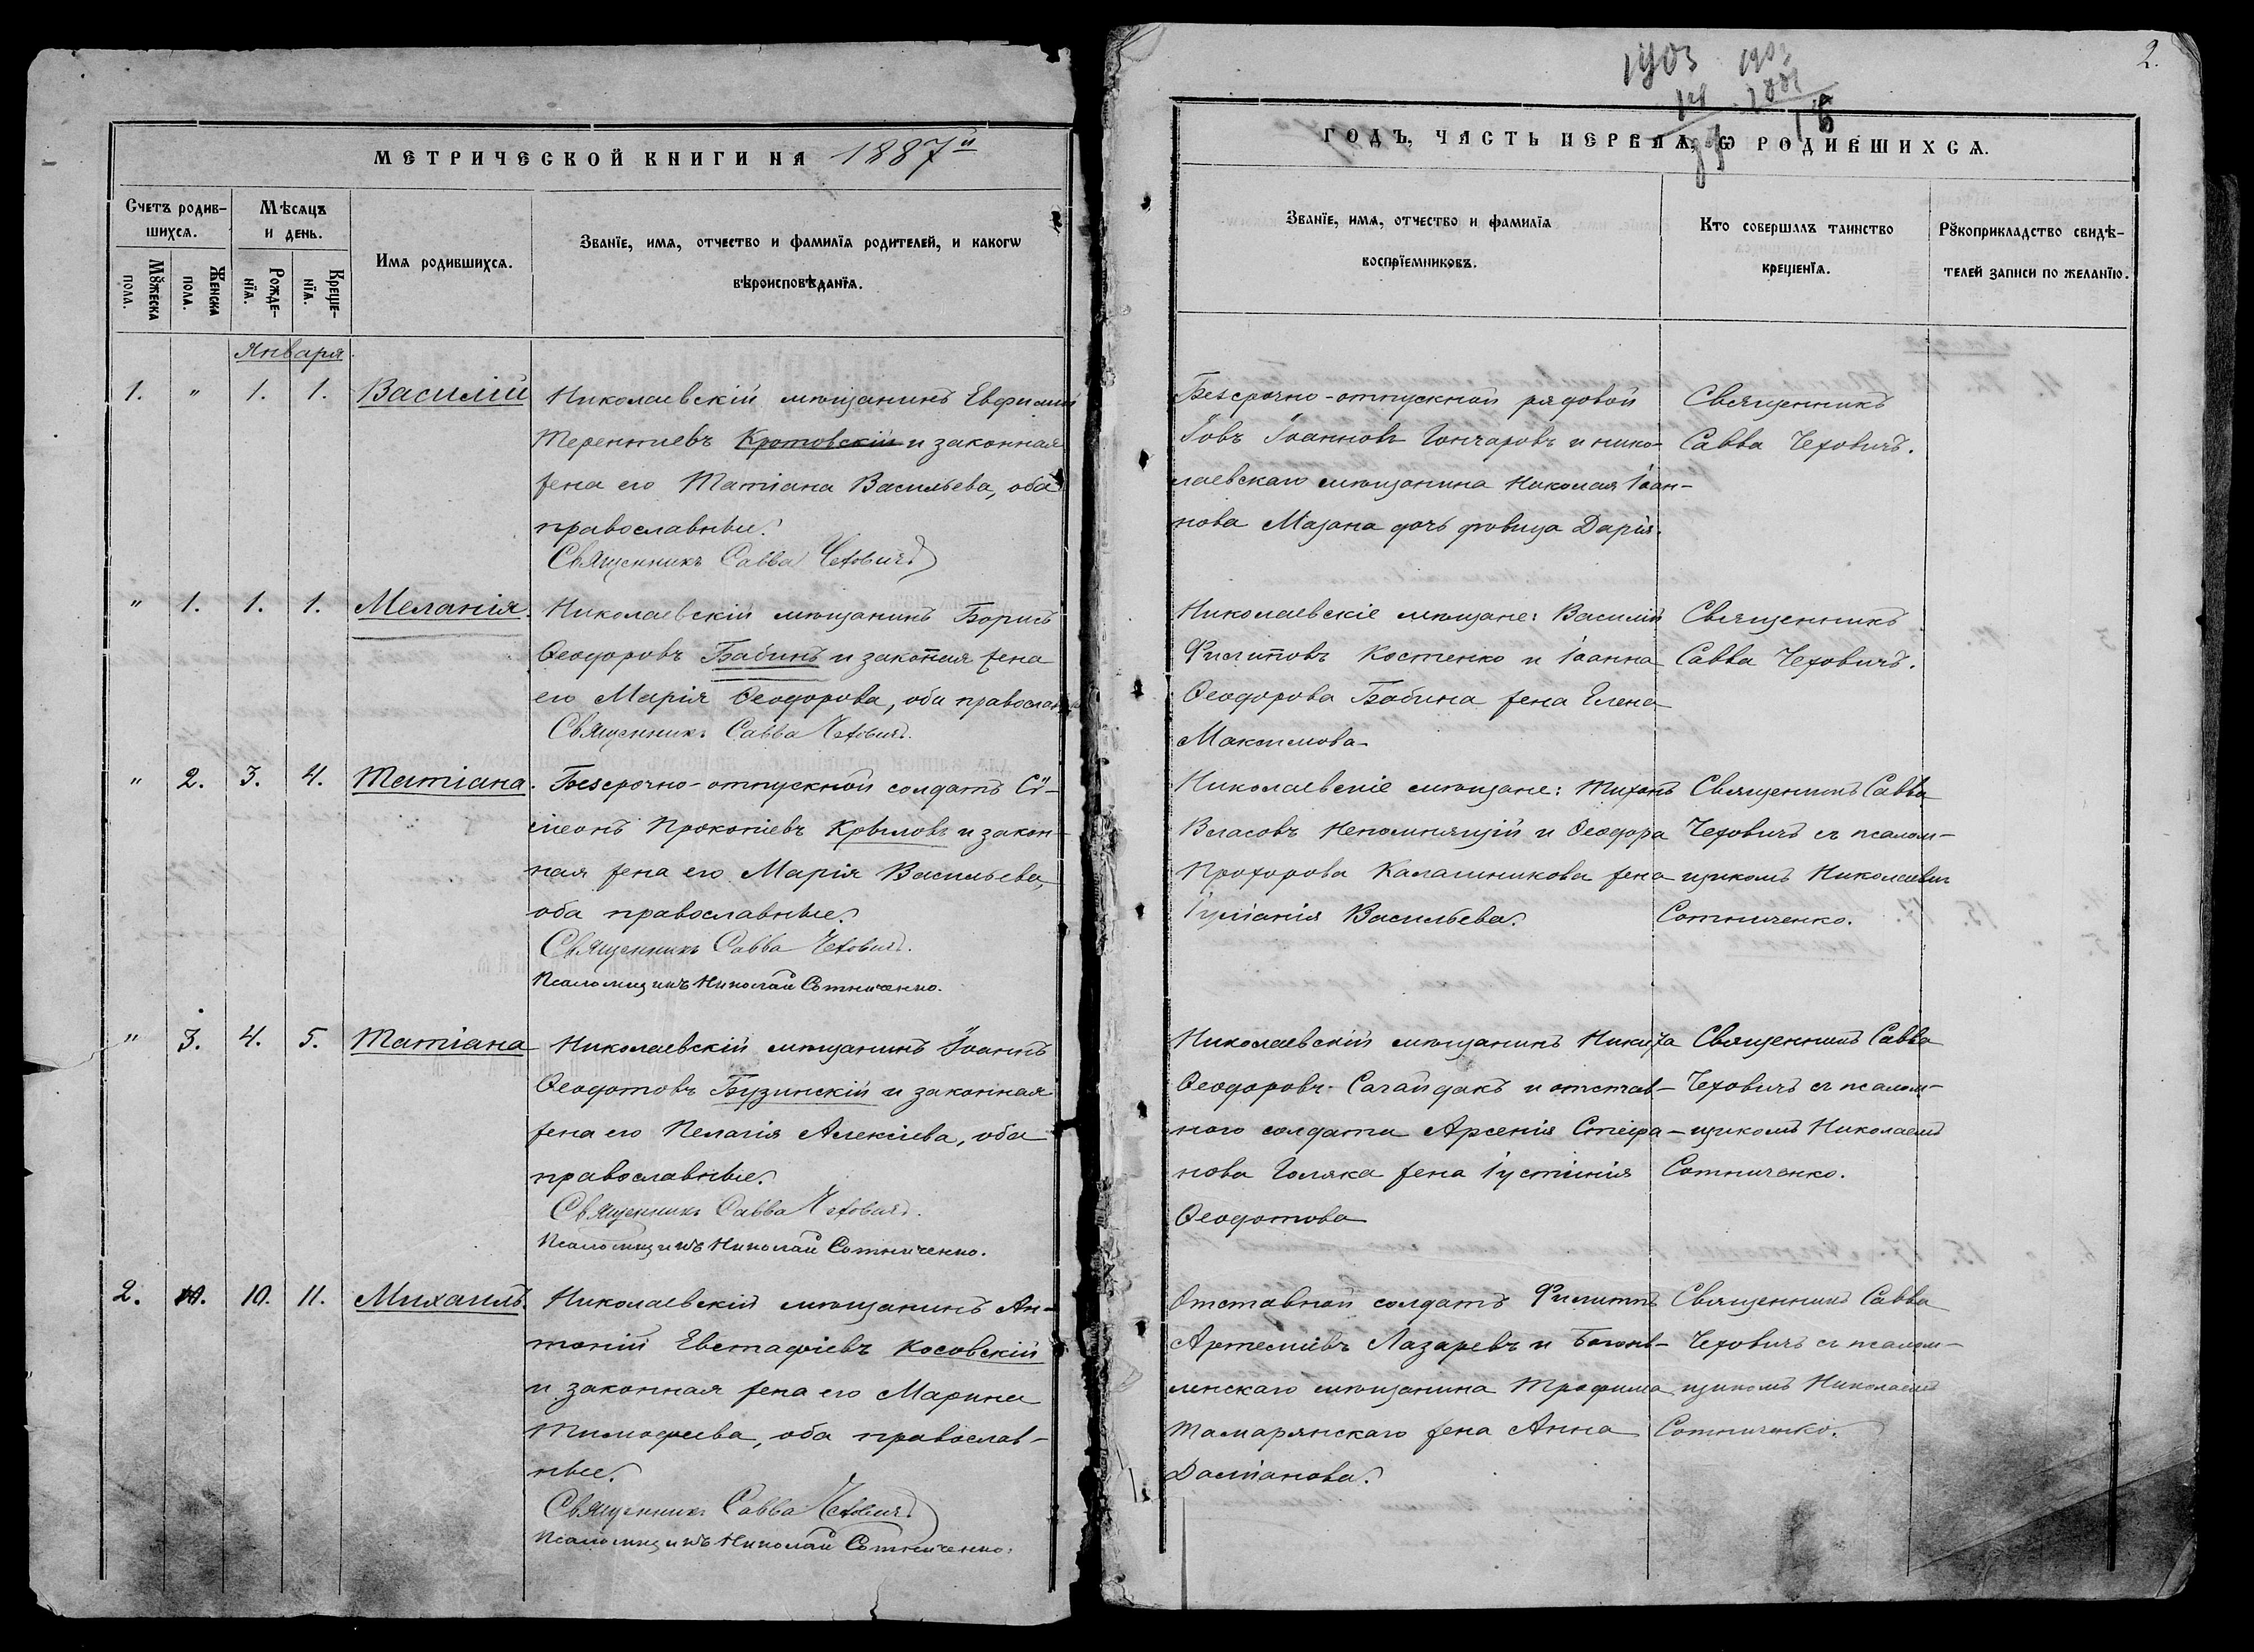 МЕТРИЧЕСКОЙ КНИГИ НА 1887й
Счетъ родив-
шихся.
Мѣсяцъ
и день.
Имя родившихся.
Званїе, имя, отчество и фамилїя родителей, и какогѡ
вѣроисповѣданїя.
Мꙋжеска
пола.
Женска
пола.
Рожде-
нїя.
Креще-
нїя.
Января
1. " 1. 1. Василій
Николаевскій мѣщанинъ Евфимій
Терентиевъ Кротовскій и законная
жена его Татіана Васильева, оба
православные.
Священникъ Савва Чеховичъ
" 1. 1. 1. Меланія.
Николаевскій мѣщанинъ Борисъ
Ѳеодоровъ Бабинъ и законная жена
его Марія Ѳеодорова, оба православ
Священникъ Савва Чеховичъ.
" 2. 3. 4. Татіана.
Безсрочно-отпускной солдатъ Сѵ-
меонъ Прокопіевъ Крыловъ и закон-
ная жена его Марія Васильева,
оба православные.
Священникъ Савва Чеховичъ.
Псаломщикъ Николай Сотниченко.
" 3. 4. 5. Татіана
Николаевскій мѣщанинъ Іоаннъ
Ѳеодотовъ Бузинскій и законная
жена его Пелагія Алексіева, оба
православные.
Священникъ Савва Чеховичъ.
Псаломщикъ Николай Сотниченко.
2. 10. 11. Михаилъ.
Николаевскій мѣщанинъ Ан-
тоній Евстафіевъ Косовскій
и законная жена его Марина
Тимофеева, оба православ-
ные.
Священникъ Савва Чеховичъ
Псаломщикъ Николай Сотниченко.
2.
1903 1903
ГОДЪ, ЧАСТЬ ПЕРВАЯ, Ѡ РОДИВШИХСЯ.
Званїе, имя, отчество и фамилїя
воспрїемниковъ.
Кто совершалъ таинство
крещенїя.
Рꙋкоприкладство свидѣ-
телей записи по желанїю.
Безсрочно-отпускной рядовой
Іовъ Іоанновъ Гончаровъ и нико-
лаевскаго мѣщанина Николая Іоан-
нова Мазана дочь дѣвица Дарія.
Священникъ
Савва Чеховичъ.
Николаевскіе мѣщане: Василій
Филиповъ Костенко и Іоанна
Ѳеодорова Бабина жена Елена
Максимова
Священникъ
Савва Чеховичъ.
Николаевскіе мѣщане: Тихонъ
Власовъ Непомнящій и Ѳеодора
Прохорова Калашникова жена
Іуліанія Васильева.
Священникъ Савва
Чеховичъ съ псалом-
щикомъ Николаемъ
Сотниченко.
Николаевскій мѣщанинъ Никита
Ѳеодоровъ Сагайдакъ и отстав-
ного солдата Арсенія Стефа-
нова Голяка жена Іустинія
Ѳеодотова
Священникъ Савва
Чеховичъ съ псалом-
щикомъ Николаемъ
Сотниченко.
Отставной солдатъ Филиппъ
Артеміевъ Лазаревъ и Богояв-
ленскаго мѣщанина Трофима
Тамарянскаго жена Анна
Даміанова.
Священникъ Савва
Чеховичъ съ псалом-
щикомъ Николаемъ
Сотниченко.